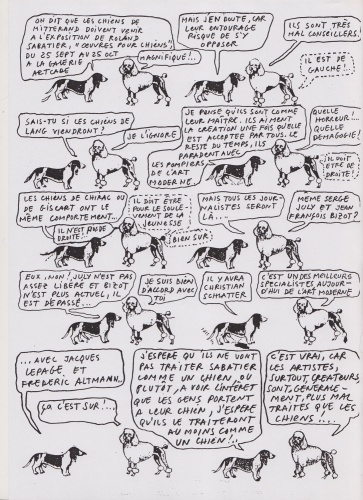 ON DIT QUE LES CHIENS DE
MITTERAND DOIVENT VENIR
À L'EXPOSITION DE ROLAND
SABATIER, "ŒUVRES POUR CHIENS",
DU 25 SEPT AU 25 OCT
À LA GALERIE
ARTCADE
MAGNIFIQUE!..
MAIS J'EN DOUTE, CAR
LEUR ENTOURAGE
RISQUE DE S'Y
OPPOSER
ILS SONT TRÈS
MAL CONSEILLERS!
IL EST DE
GAUCHE!
SAIS-TU SI LES CHIENS DE
LANG VIENDRONT?
JE L'IGNORE
JE PENSE QU'ILS SONT COMME
LEUR MAÎTRE. ILS AIMENT
LA CRÉATION UNE FOIS QU'ELLE
EST ACCEPTÉE PAR TOUS. LE
RESTE DU TEMPS, ILS
PARADENT AVEC
LES POMPIERS
DE L'ART
MODERNE..
QUELLE
HORREUR!
QUELLE
DÉMAGOGIE!
IL DOIT ÊTRE
DE DROITE!
LES CHIENS DE CHIRAC OU
DE GISCART ONT LE
MÊME COMPORTEMENT...
IL N'EST PAS DE
DROITE..
IL DOIT ÊTRE
POUR LE SOULÈ-
VEMENT DE LA
JEUNESSE
BIEN SUR.
MAIS TOUS LES JOUR-
NALISTES SERONT
LÀ...
MEME SERGE
JULY ET JEAN
FRANÇOIS BIZOT?
EUX, NON! JULY N'EST PAS
ASSEZ LIBÉRÉ ET BIZOT
N'EST PLUS ACTUEL, IL
EST DÉPASSÉ...
JE SUIS BIEN
D'ACCORD AVEC
TOI
IL Y AURA
CHRISTIAN
SCHLATTER
C'EST UN DES MEILLEURS
SPÉCIALISTES, AUJOUR-
D'HUI DE L'ART MODERNE.
...AVEC JACQUES
LEPAGE ET
FRÉDÉRIC ALTMANN..
ÇA C'EST SUR!...
J'ESPÈRE QU'ILS NE VONT
PAS TRAITER SABATIER
COMME UN CHIEN, OU
PLUTÔT, À VOIR L'INTÉRÊT
QUE LES GENS PORTENT
À LEUR CHIEN, J'ESPÈRE
QU'ILS LE TRAITERONT
AU MOINS COMME
UN CHIEN!..
C'EST VRAI, CAR
LES ARTISTES,
SURTOUT, CRÉATEURS,
SONT, GÉNÉRALE-
MENT, PLUS MAL
TRAITÉS QUE LES
CHIENS!...